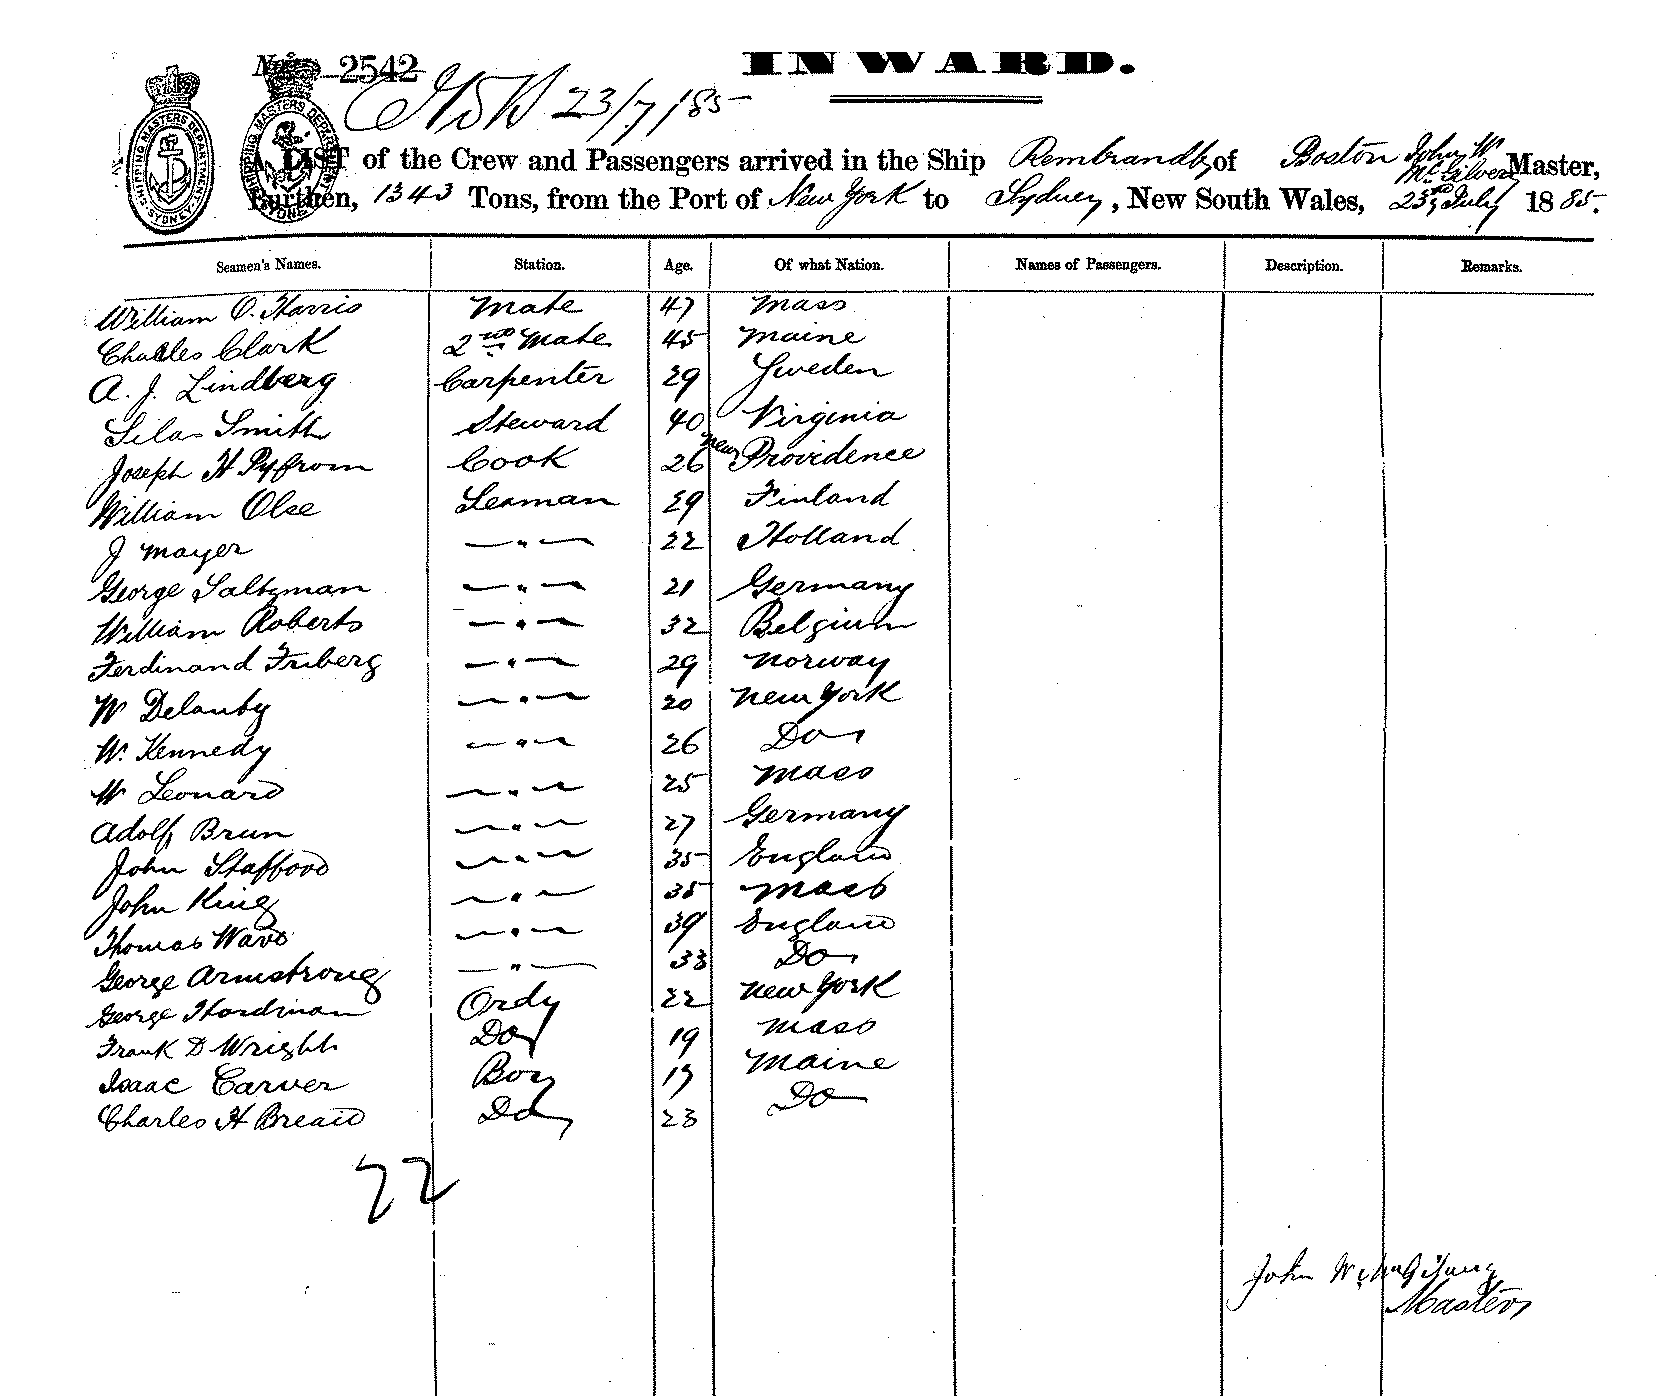 No. 2542
INWARD.
23/7/85
SHIPPING MASTERS DEPARTMENT SYDNEY
SHIPPING MASTERS DEPARTMENT SYDNEY
A LIST of the Crew and Passengers arrived in the Ship Rembrandt, of Boston John W. McGilvery Master,
Burthen, 1343 Tons, from the Port of New York to Sydney, New South Wales, 23rd July 1885.
Seamen's Names. Station. Age. Of what Nation. Names of Passengers. Description. Remarks.
William O. Harris Mate 47 Mass
Charles Clark 2nd Mate 45 Maine
A. J. Lindberg Carpenter 29 Sweden
Silas Smith Steward 40 Virginia
Joseph H Pyfrom Cook 26 New Providence
William Olse Seaman 29 Finland
J Mayer —"— 22 Holland
George Saltzman —"— 21 Germany
William Roberts —"— 32 Belgium
Ferdinand Friberg —"— 29 Norway
W Delanby —"— 20 New York
W. Kennedy —"— 26 Do
W Leonard —"— 25 Mass
Adolf Brun —"— 27 Germany
John Stafford —"— 35 England
John King —"— 35 Mass
Thomas Ward —"— 39 England
George Armstrong —"— 33 Do
George Hardman Ordy 22 New York
Frank D Wright Do 19 Mass
Isaac Carver Boy 19 Maine
Charles H Do 23 Do
22
John W. McGilvery
Master